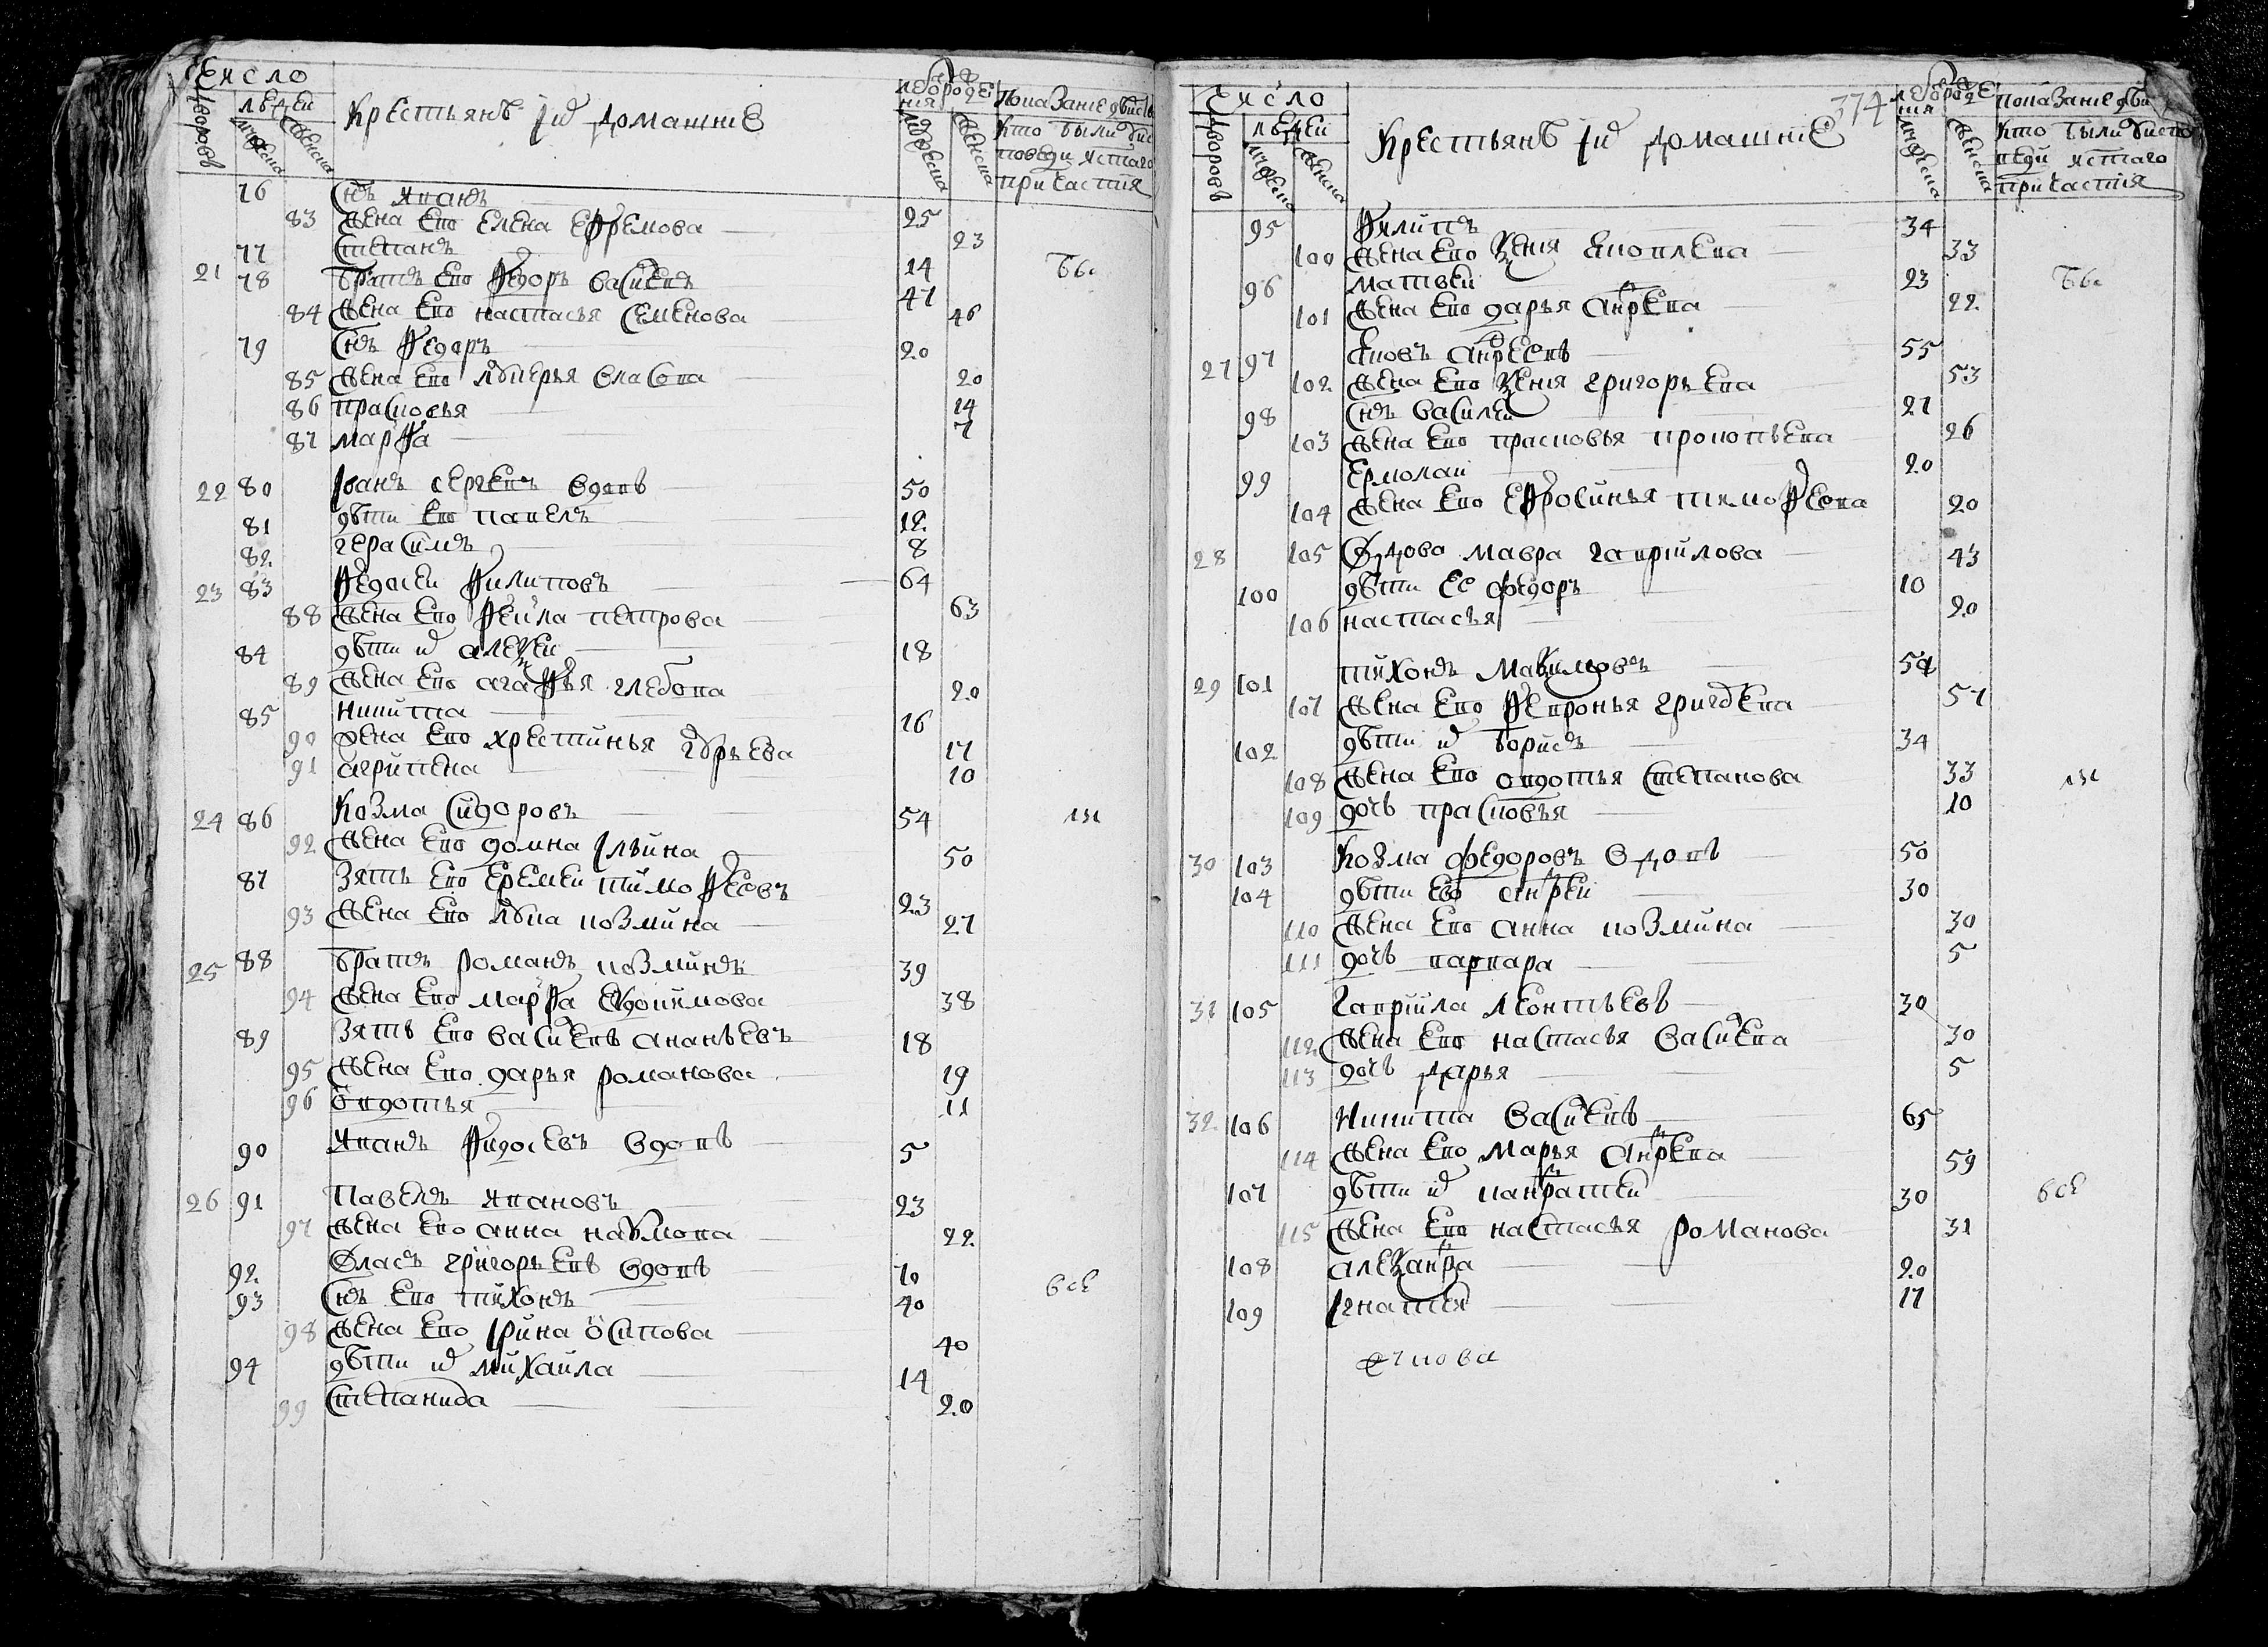 Число
людей
дворовъ
мужеска
женска
Крестьянъ их домашние
лет от рождения
мужеска
женска
Показание действа
кто были у ис
поведи и стаго
причастия
76 Снъ Иванъ 25
83 Жена Ево Елена Ефремова 23
77 Степанъ 14
21 78 Братъ Ево Федоръ Васильевъ 47
84 Жена Ево настасья Семенова 46
79 Снъ Федоръ 20
85 Жена Ево лукерья Власова 20
86 прасковья 14
87 марфа 7
бы
22 80 Iванъ сергеевъ вдовъ 50
81 дѣти Ево павелъ 12
82 герасимъ 8
23 83 Федосеи Филиповъ 64
88 Жена Ево Фекла петрова 63
84 дѣти их алексеи 18
89 Жена Ево агафья глебова 20
85 никита 16
90 Жена Ево христинья гурьева 17
91 агрипена 10
24 86 Козма Сидоровъ 54
92 Жена Ево домна Iльина 50
87 Зять Ево Еремеи тимофеевъ 23
93 Жена Ево лукиа козмина 27
ли
25 88 братъ романъ козминъ 39
94 Жена Ево марфа Евдокимова 38
89 Зять Ево василевъ ананьевъ 18
95 Жена Ево дарья романова 19
96 овдотья 11
90 Иванъ Фидосевъ вдовъ 5
26 91 Павелъ ивановъ 23
97 Жена Ево анна наумова 22
92 Власъ григорьевъ вдовъ 70
93 Снъ Ево тихонъ 40
98 Жена Ево Iрина осипова 40
94 дѣти их михаила 14
99 Степанида 20
все
Число
людей
дворовъ
мужеска
женска
Крестьянъ их домашние
374
лет от рождения
мужеска
женска
показание действа
кто были у испо
веди и стаго
причастия
95 Филипъ 34
100 Жена Ево Ксения Яковлева 33
96 матвеи 23
101 Жена Ево дарья андреева 22
бы
27 97 Яковъ андреевъ 55
102 Жена Ево Ксения григорьева 53
98 Снъ василеи 27
103 Жена Ево прасковья прокопьева 26
99 Ермолаи 20
104 Жена Ево Ефросинья тимофеева 20
28 105 Вдова мавра гаврилова 43
100 дѣти Ее федоръ 10
106 настасья 20
29 101 тихонъ максимовъ 54
107 Жена Ево Февронья григорева 57
102 дѣти их борисъ 34
108 Жена Ево овдотья Степанова 33
109 дочь прасковья 10
ли
30 103 Козма федоровъ вдовъ 50
104 дѣти Ево андреи 30
110 Жена Ево анна козмина 30
111 дочь варвара 5
31 105 Гаврила леонтьевъ 30
112 Жена Ево настасья василева 30
113 дочь дарья 5
32 106 Никита василевъ 65
114 Жена Ево марья андреева 59
107 дѣти их панкратеи 30
115 Жена Ево настасья романова 31
108 александра 20
109 Iгнатеи 17
все